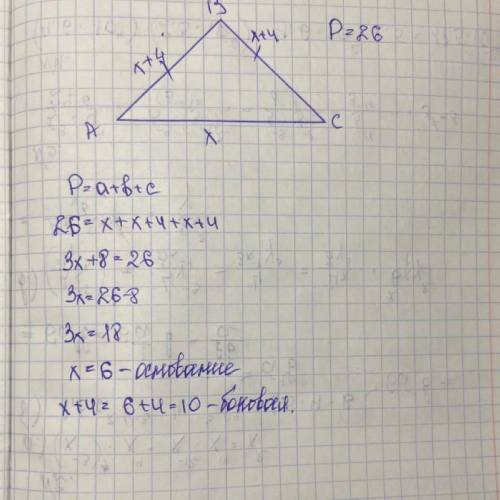 B
x+4 x+4 P=26
A x C
P=a+b+c
26=x+x+4+x+4
3x+8=26
3x=26-8
3x=18
x=6-основание
x+4= 6+4=10-боковая.